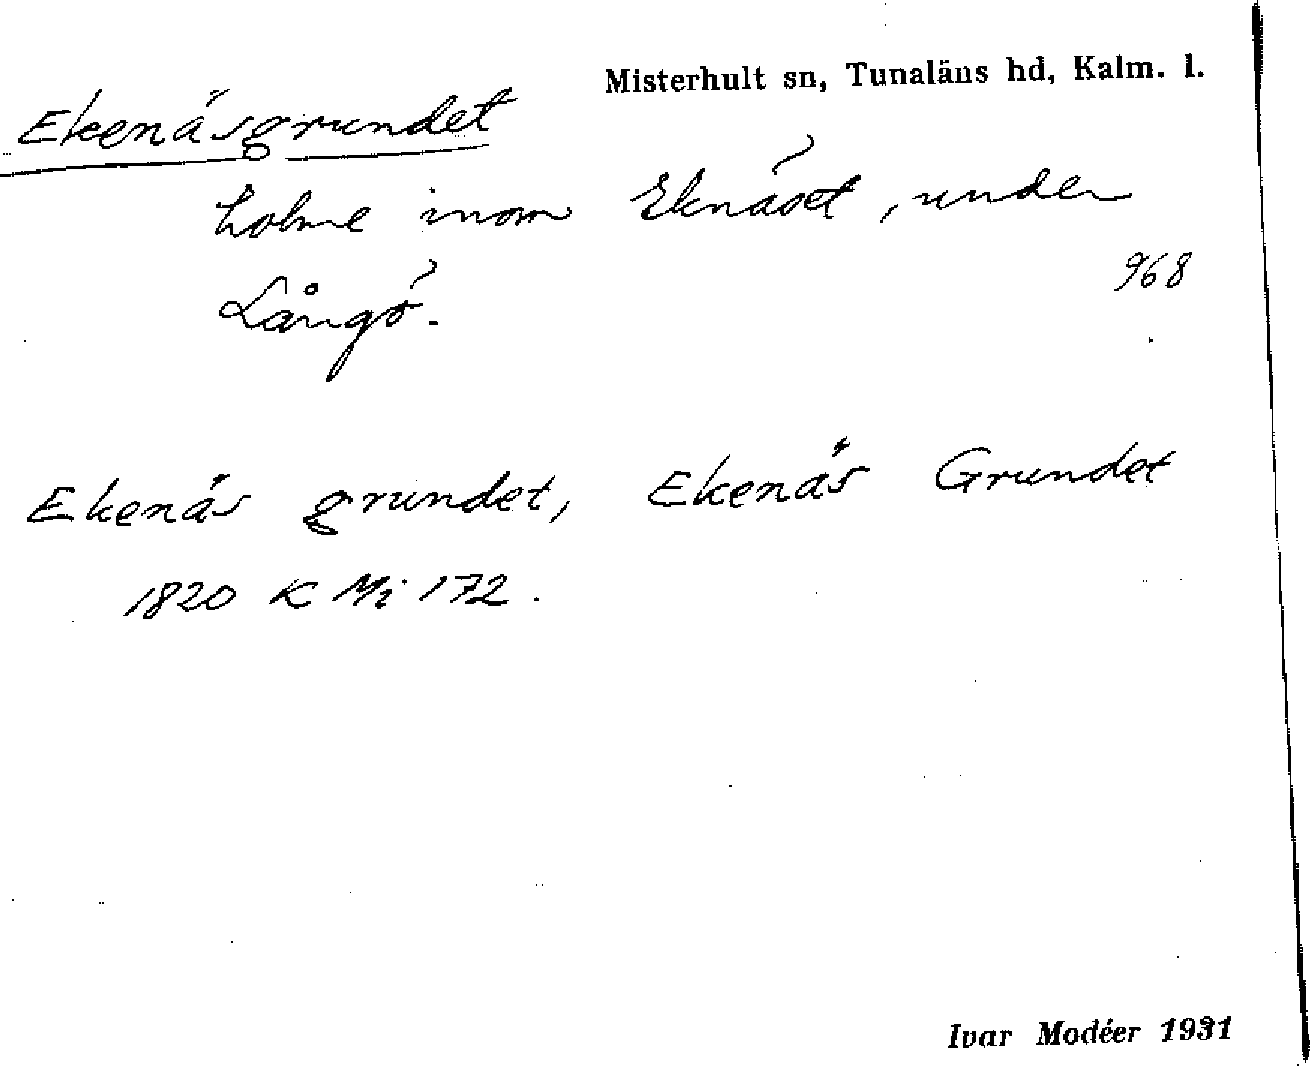 Misterhult sn, Tunaläns hd, Kalm. l.
Ekenäsgrundet
holme inom Eknäset, under
968
Långö.
Ekenäs grundet, Ekenäs Grundet
1820 K Mi 172.
Ivar Modéer 1931